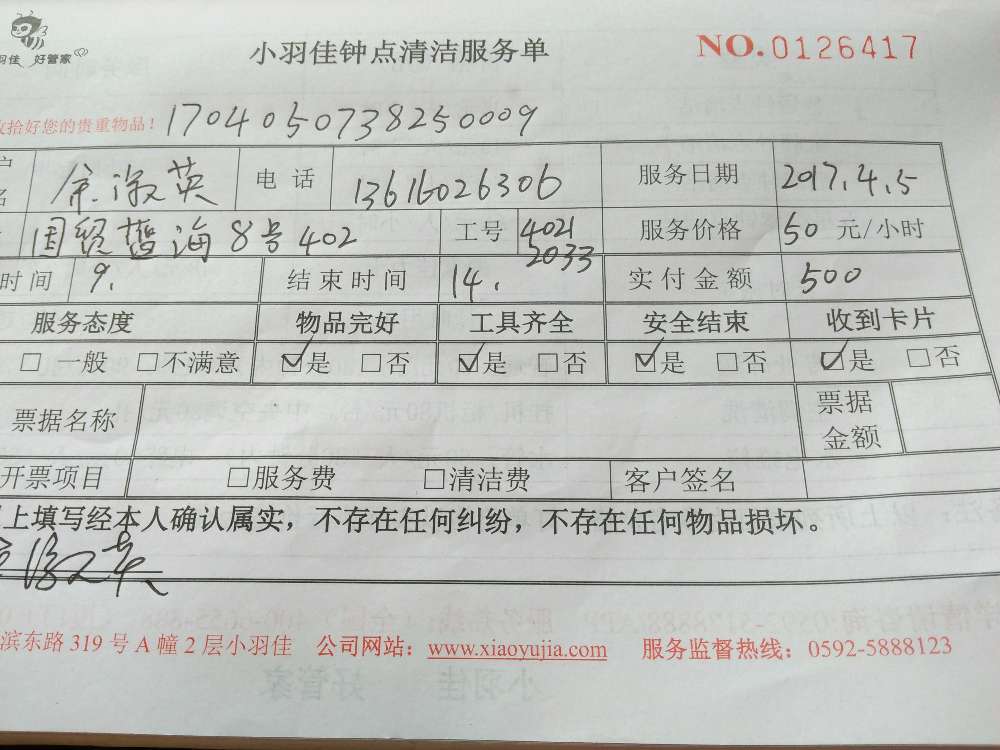 小羽佳钟点清洁服务单 NO.0126417
羽佳 好管家
收拾好您的贵重物品! 1704050738250009
户名 余淑英 电话 13616026306 服务日期 2017.4.5
国贸蓝海8号402 工号 4021 2033 服务价格 50 元/小时
时间 9. 结束时间 14. 实付金额 500
服务态度 物品完好 工具齐全 安全结束 收到卡片
□ 一般 □不满意 ☑是 □否 ☑是 □否 ☑是 □否 ☑是 □否
票据名称 票据金额
开票项目 □服务费 □清洁费 客户签名
上填写经本人确认属实，不存在任何纠纷，不存在任何物品损坏。
滨东路 319 号 A 幢 2 层小羽佳 公司网站：www.xiaoyujia.com 服务监督热线：0592-5888123